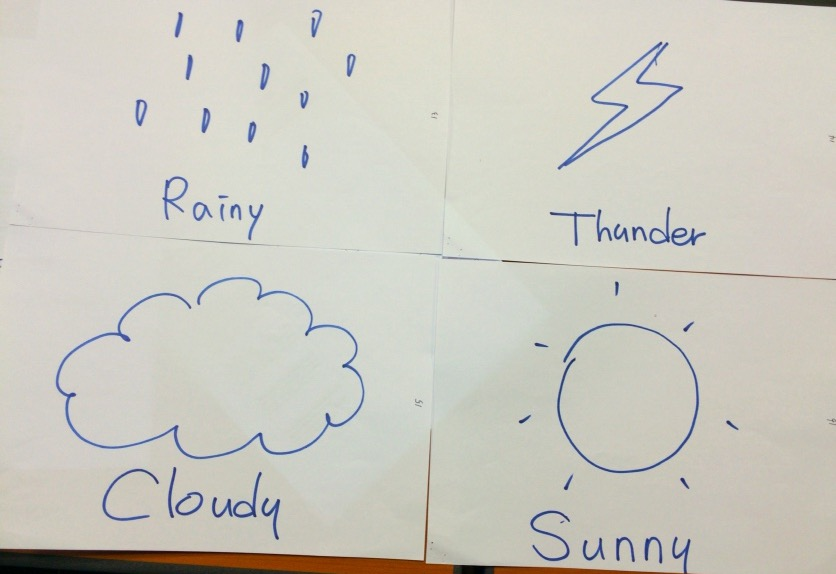 Rainy
13
Thunder
14
Cloudy
15
Sunny
16